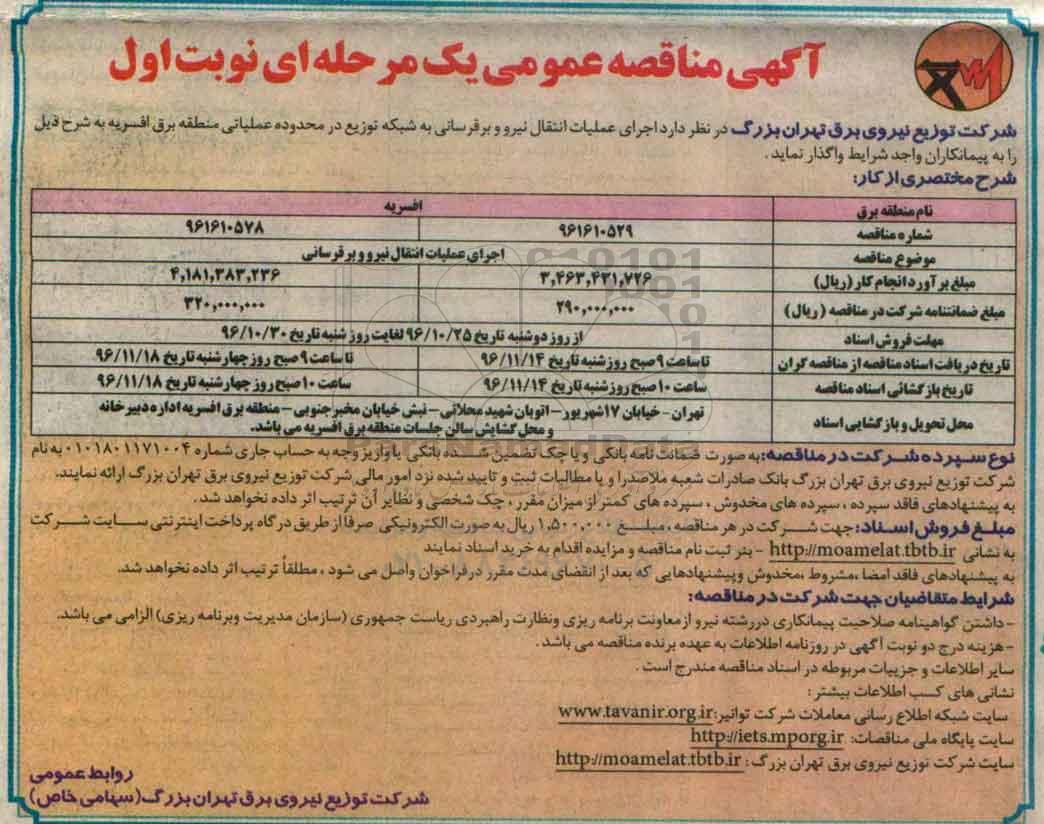 آگهی مناقصه عمومی یک مرحله ای نوبت اول
شرکت توزیع نیروی برق تهران بزرگ در نظر دارد اجرای عملیات انتقال نیرو و برقرسانی به شبکه توزیع در محدوده عملیاتی منطقه برق افسریه به شرح ذیل
را به پیمانکاران واجد شرایط واگذار نماید.
شرح مختصری از کار:
نام منطقه برق افسریه
شماره مناقصه ۹۶۱۶۱۰۵۲۹ ۹۶۱۶۱۰۵۷۸
موضوع مناقصه اجرای عملیات انتقال نیرو و برقرسانی
مبلغ برآورد انجام کار (ریال) ۳,۴۶۳,۴۳۱,۷۲۶ ۴,۱۸۱,۳۸۳,۲۳۶
مبلغ ضمانتنامه شرکت در مناقصه (ریال) ۲۹۰,۰۰۰,۰۰۰ ۳۲۰,۰۰۰,۰۰۰
مهلت فروش اسناد از روز دوشنبه تاریخ ۹۶/۱۰/۲۵ لغایت روز شنبه تاریخ ۹۶/۱۰/۳۰
تاریخ دریافت اسناد مناقصه از مناقصه گران تا ساعت ۹ صبح روز شنبه تاریخ ۹۶/۱۱/۱۴ تا ساعت ۹ صبح روز چهارشنبه تاریخ ۹۶/۱۱/۱۸
تاریخ بازگشائی اسناد مناقصه ساعت ۱۰ صبح روز شنبه تاریخ ۹۶/۱۱/۱۴ ساعت ۱۰ صبح روز چهارشنبه تاریخ ۹۶/۱۱/۱۸
محل تحویل و بازگشایی اسناد تهران - خیابان ۱۷ شهریور - اتوبان شهید محلاتی - نبش خیابان مخبر جنوبی - منطقه برق افسریه اداره دبیرخانه
و محل گشایش سالن جلسات منطقه برق افسریه می باشد.
نوع سپرده شرکت در مناقصه: به صورت ضمانت نامه بانکی و یا چک تضمین شده بانکی یا واریز وجه به حساب جاری شماره ۰۱۰۱۸۰۱۱۷۱۰۰۴ به نام
شرکت توزیع نیروی برق تهران بزرگ بانک صادرات شعبه ملاصدرا و یا مطالبات ثبت و تایید شده نزد امور مالی شرکت توزیع نیروی برق تهران بزرگ ارائه نمایند.
به پیشنهادهای فاقد سپرده ، سپرده های مخدوش ، سپرده های کمتر از میزان مقرر ، چک شخصی و نظایر آن ترتیب اثر داده نخواهد شد.
مبلغ فروش اسناد: جهت شرکت در هر مناقصه ، مبلغ ۱,۵۰۰,۰۰۰ ریال به صورت الکترونیکی صرفاً از طریق درگاه پرداخت اینترنتی سایت شرکت
به نشانی http://moamelat.tbtb.ir - بنر ثبت نام مناقصه و مزایده اقدام به خرید اسناد نمایند
به پیشنهادهای فاقد امضا ،مشروط ،مخدوش وپیشنهادهایی که بعد از انقضای مدت مقرر درفراخوان واصل می شود ، مطلقاً ترتیب اثر داده نخواهد شد.
شرایط متقاضیان جهت شرکت در مناقصه:
- داشتن گواهینامه صلاحیت پیمانکاری دررشته نیرو ازمعاونت برنامه ریزی ونظارت راهبردی ریاست جمهوری (سازمان مدیریت وبرنامه ریزی) الزامی می باشد.
- هزینه درج دو نوبت آگهی در روزنامه اطلاعات به عهده برنده مناقصه می باشد .
سایر اطلاعات و جزییات مربوطه در اسناد مناقصه مندرج است .
نشانی های کسب اطلاعات بیشتر :
سایت شبکه اطلاع رسانی معاملات شرکت توانیر: www.tavanir.org.ir
سایت پایگاه ملی مناقصات: http://iets.mporg.ir
سایت شرکت توزیع نیروی برق تهران بزرگ : http://moamelat.tbtb.ir
روابط عمومی
شرکت توزیع نیروی برق تهران بزرگ (سهامی خاص)